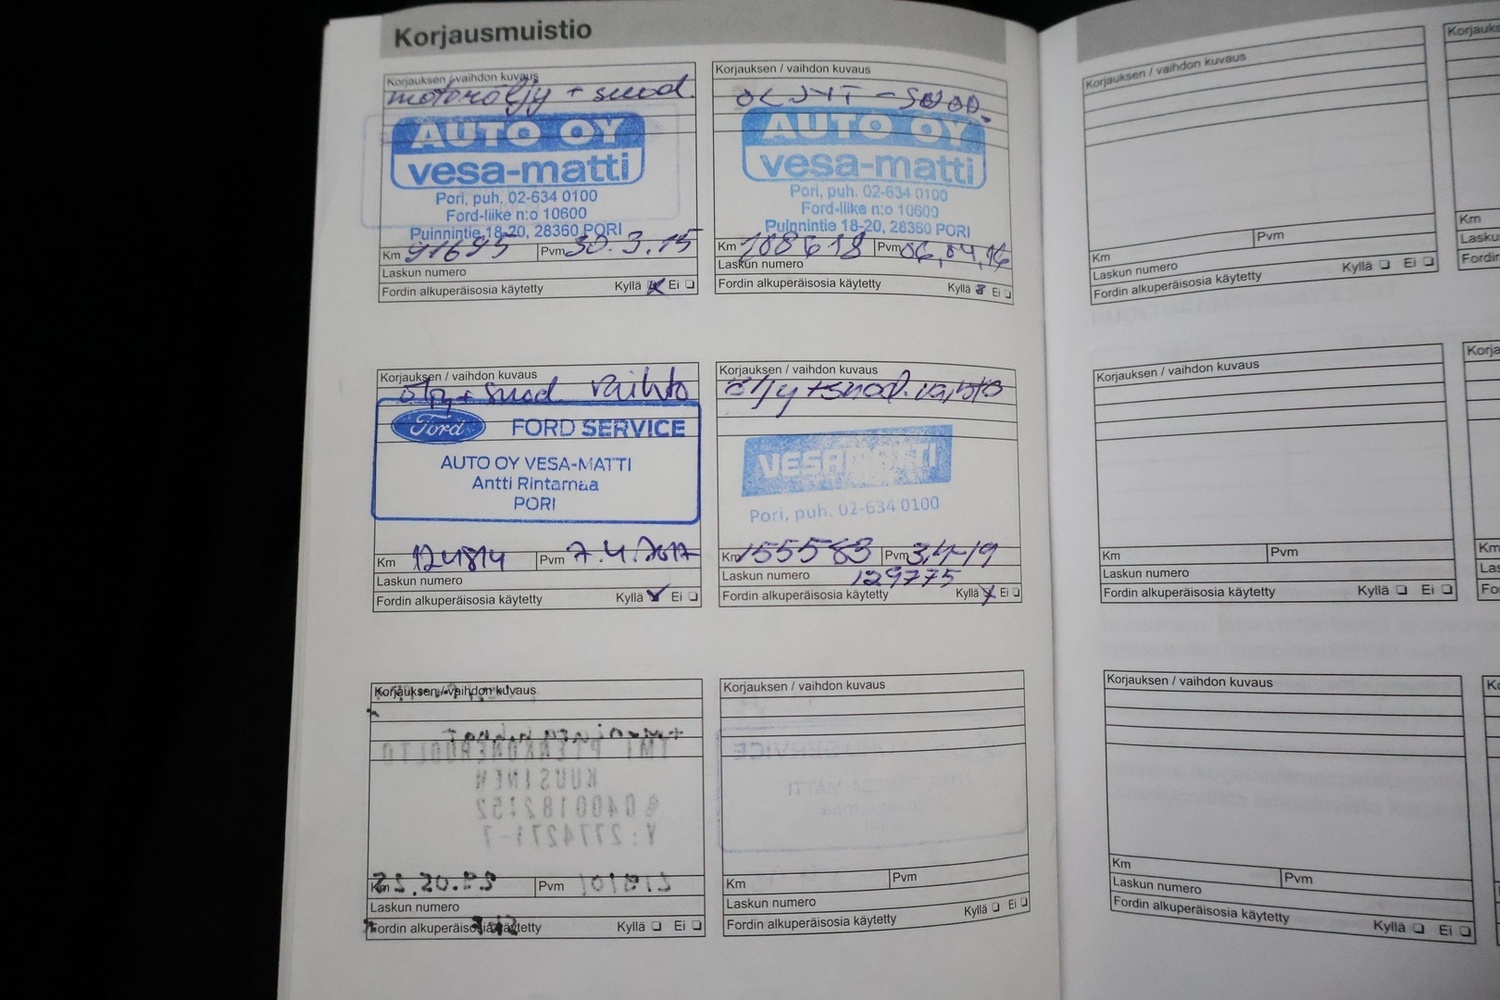 Korjausmuistio
Korjauksen / vaihdon kuvaus
motoröljy + suod.
AUTO OY
vesa-matti
Pori, puh. 02-634 0100
Ford-liike n:o 10600
Puinnintie 18-20, 28360 PORI
Km 91695 Pvm 30.3.15
Laskun numero
Fordin alkuperäisosia käytetty Kyllä Ei
Korjauksen / vaihdon kuvaus
ÖLJYT - SUOD.
AUTO OY
vesa-matti
Pori, puh. 02-634 0100
Ford-liike n:o 10600
Puinnintie 18-20, 28360 PORI
Km 108618 Pvm 06,04,16
Laskun numero
Fordin alkuperäisosia käytetty Kyllä Ei
Korjauksen / vaihdon kuvaus
öljy + suod vaihto
Ford FORD SERVICE
AUTO OY VESA-MATTI
Antti Rintamaa
PORI
Km 124814 Pvm 7.4.2017
Laskun numero
Fordin alkuperäisosia käytetty Kyllä Ei
Korjauksen / vaihdon kuvaus
öljy + suod. vaihto
VESA-MATTI
Pori, puh. 02-634 0100
Km 155583 Pvm 3,4-19
Laskun numero 129775
Fordin alkuperäisosia käytetty Kyllä Ei
Korjauksen / vaihdon kuvaus
TMI PIENKONEHUOLTO
KUUSINEN
0400182152
Y:2774271-7
Km Pvm
Laskun numero
Fordin alkuperäisosia käytetty Kyllä Ei
Korjauksen / vaihdon kuvaus
Km Pvm
Laskun numero
Fordin alkuperäisosia käytetty Kyllä Ei
Korjauksen / vaihdon kuvaus
Km Pvm
Laskun numero
Fordin alkuperäisosia käytetty Kyllä Ei
Korjauksen / vaihdon kuvaus
Km Pvm
Laskun numero
Fordin alkuperäisosia käytetty Kyllä Ei
Korjauksen / vaihdon kuvaus
Km Pvm
Laskun numero
Fordin alkuperäisosia käytetty Kyllä Ei